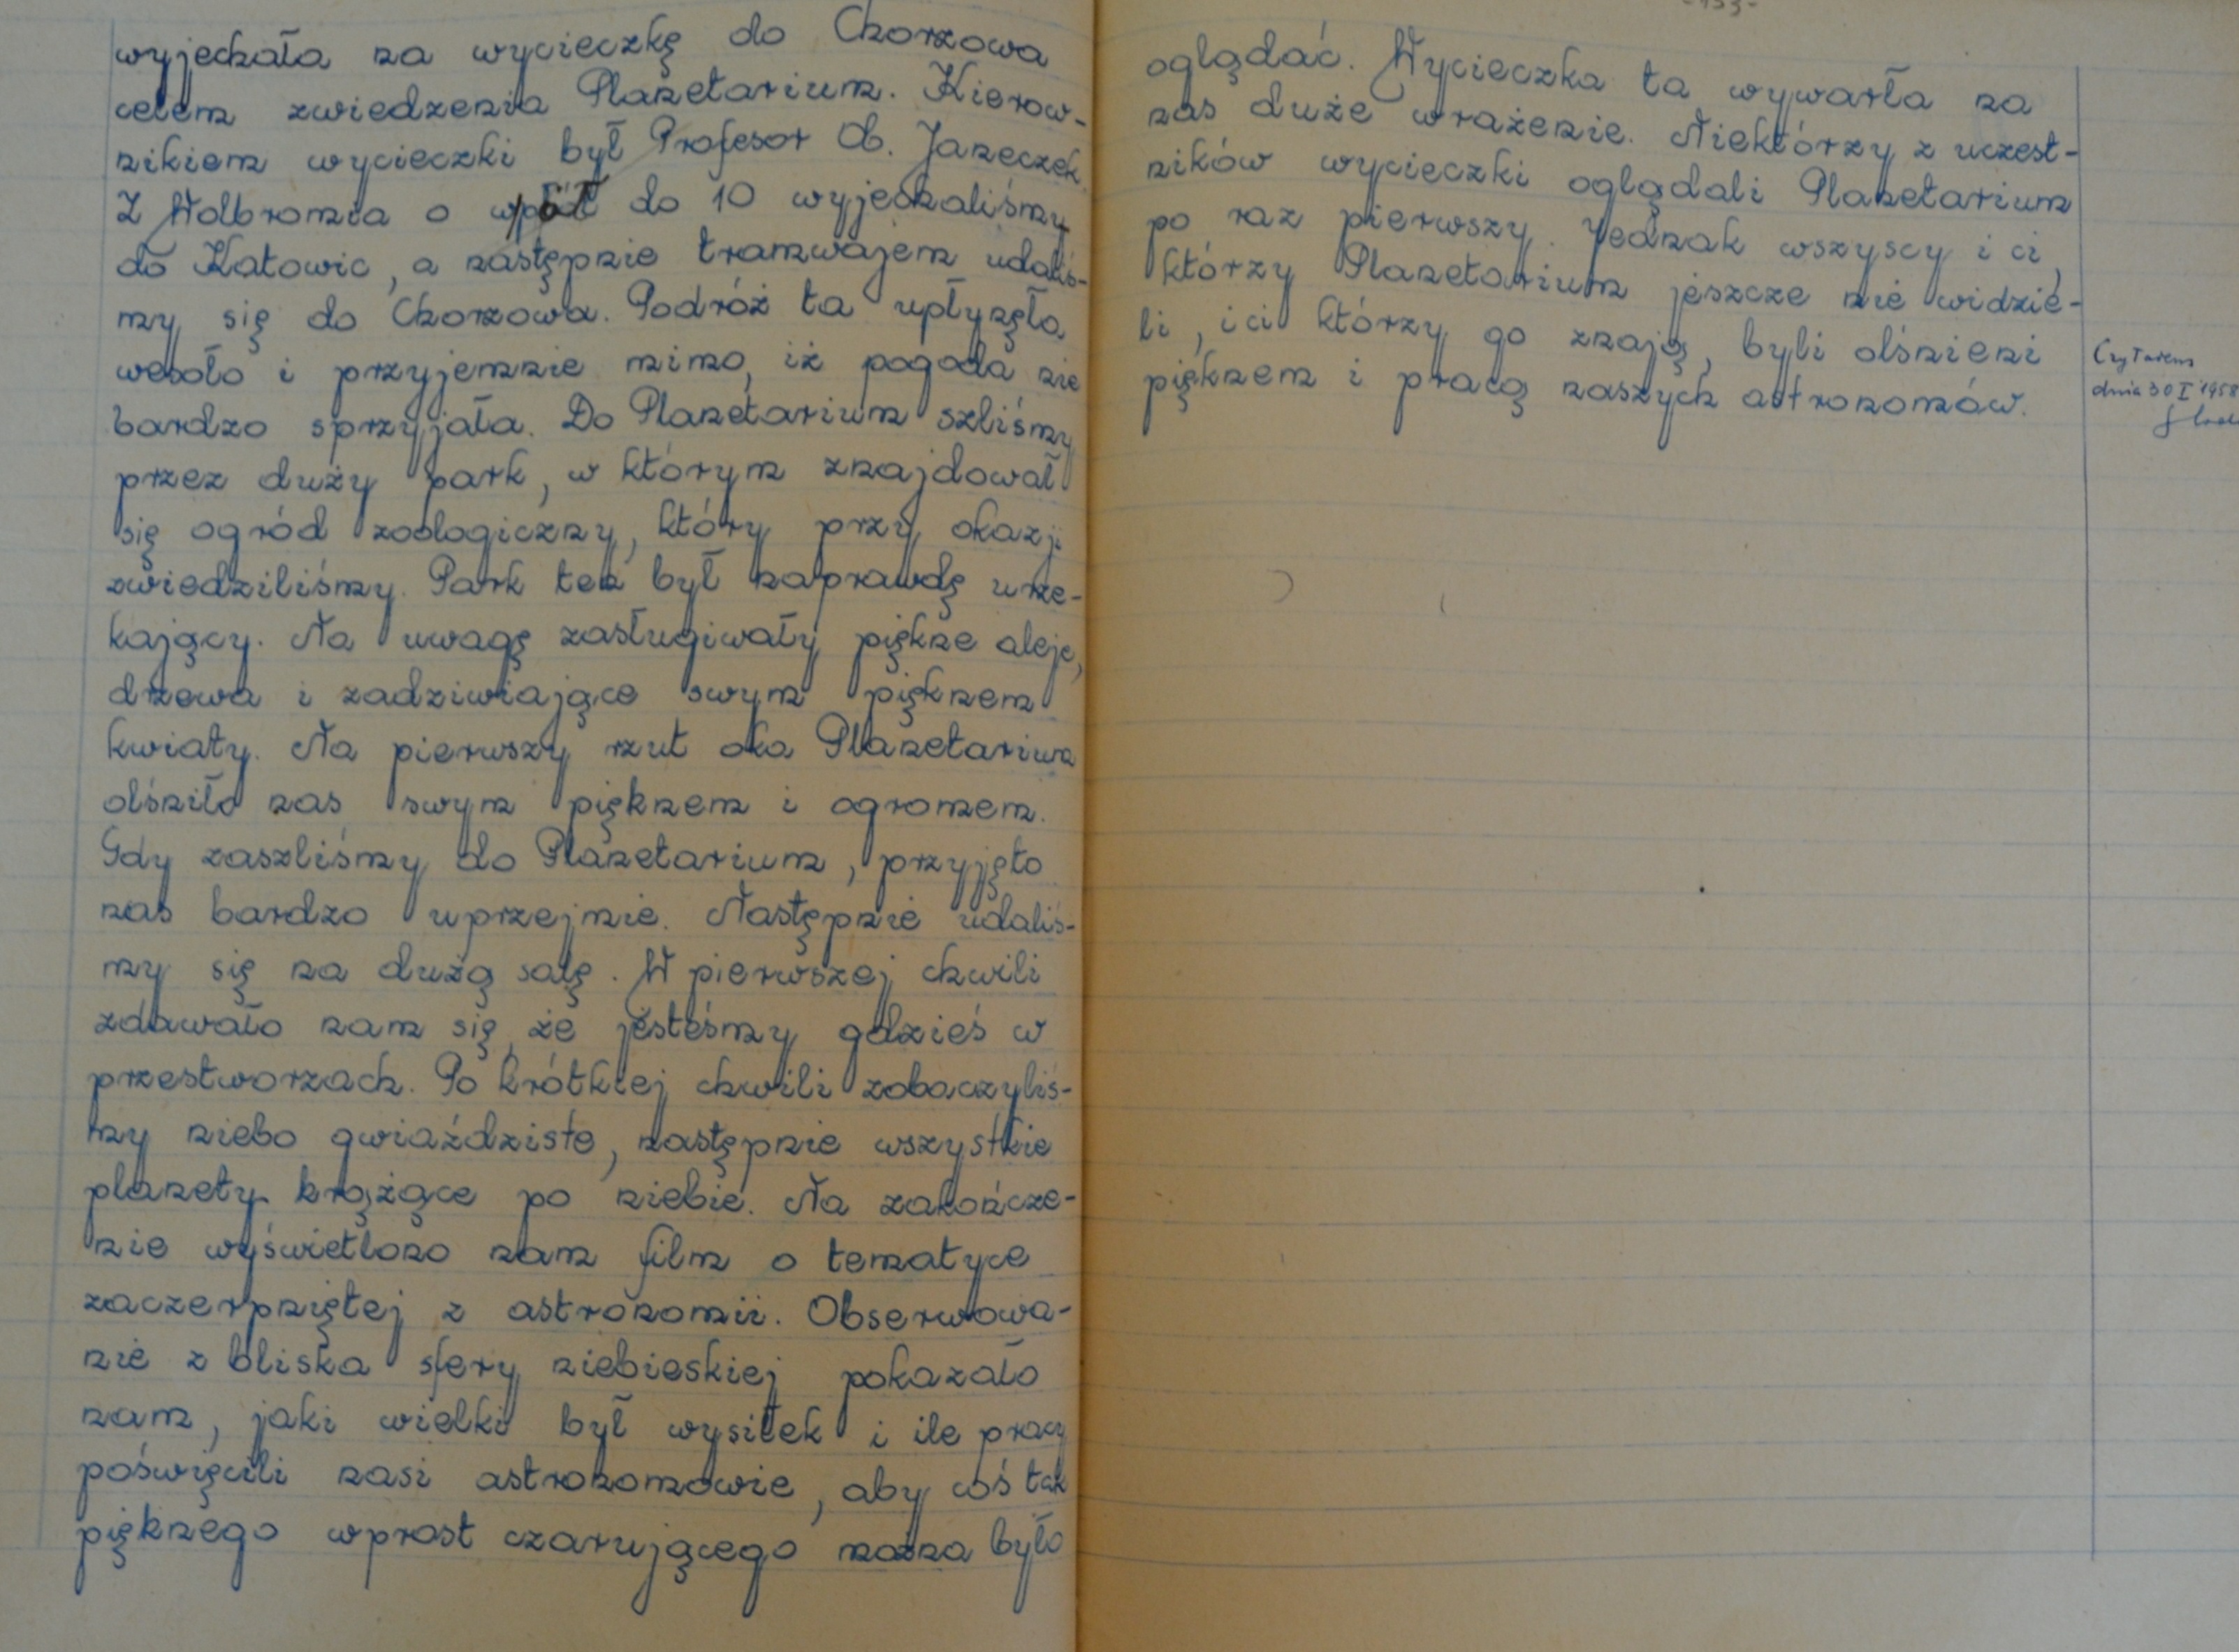 wyjechała na wycieczkę do Chorzowa
celem zwiedzenia Planetarium. Kierow-
nikiem wycieczki był Profesor Ob. Janeczek.
Z Wolbromia o wpół do 10 wyjechaliśmy
do Katowic, a następnie tramwajem udaliś-
my się do Chorzowa. Podróż ta upłynęła
wesoło i przyjemnie mimo, iż pogoda nie
bardzo sprzyjała. Do Planetarium szliśmy
przez duży park, w którym znajdował
się ogród zoologiczny, który przy okazji
zwiedziliśmy. Park ten był naprawdę urze-
kający. Na uwagę zasługiwały piękne aleje,
drzewa i zadziwiające swym pięknem
kwiaty. Na pierwszy rzut oka Planetarium
olśniło nas swym pięknem i ogromem.
Gdy zaszliśmy do Planetarium, przyjęto
nas bardzo uprzejmie. Następnie udaliś-
my się na dużą salę. W pierwszej chwili
zdawało nam się, że jesteśmy gdzieś w
przestworzach. Po krótkiej chwili zobaczyliś-
my niebo gwiaździste, następnie wszystkie
planety krążące po niebie. Na zakończe-
nie wyświetlono nam film o tematyce
zaczerpniętej z astronomii. Obserwowa-
nie z bliska sfery niebieskiej pokazało
nam, jaki wielki był wysiłek i ile pracy
poświęcili nasi astronomowie, aby coś tak
pięknego wprost czarującego można było
-153-
oglądać. Wycieczka ta wywarła na
nas duże wrażenie. Niektórzy z uczest-
ników wycieczki oglądali Planetarium
po raz pierwszy. Jednak wszyscy i ci,
którzy Planetarium jeszcze nie widzie-
li, i ci którzy go znają, byli olśnieni
pięknem i pracą naszych astronomów.
Czytałem
dnia 30 I 1958